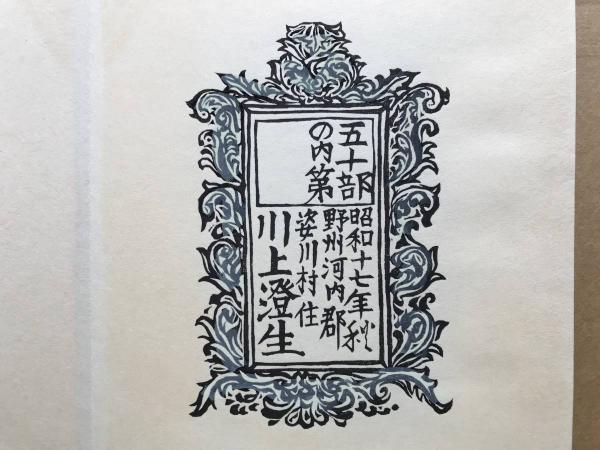 五十部
の内第
昭和十七年秋
野州河内郡
姿川村住
川上澄生